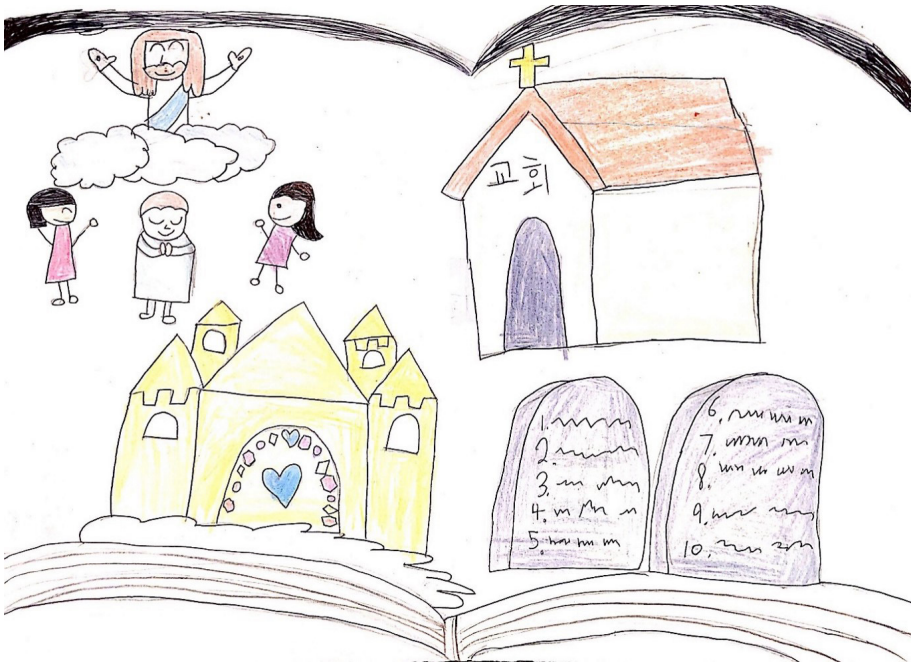 교회
1.
2.
3.
4.
5.
6.
7.
8.
9.
10.